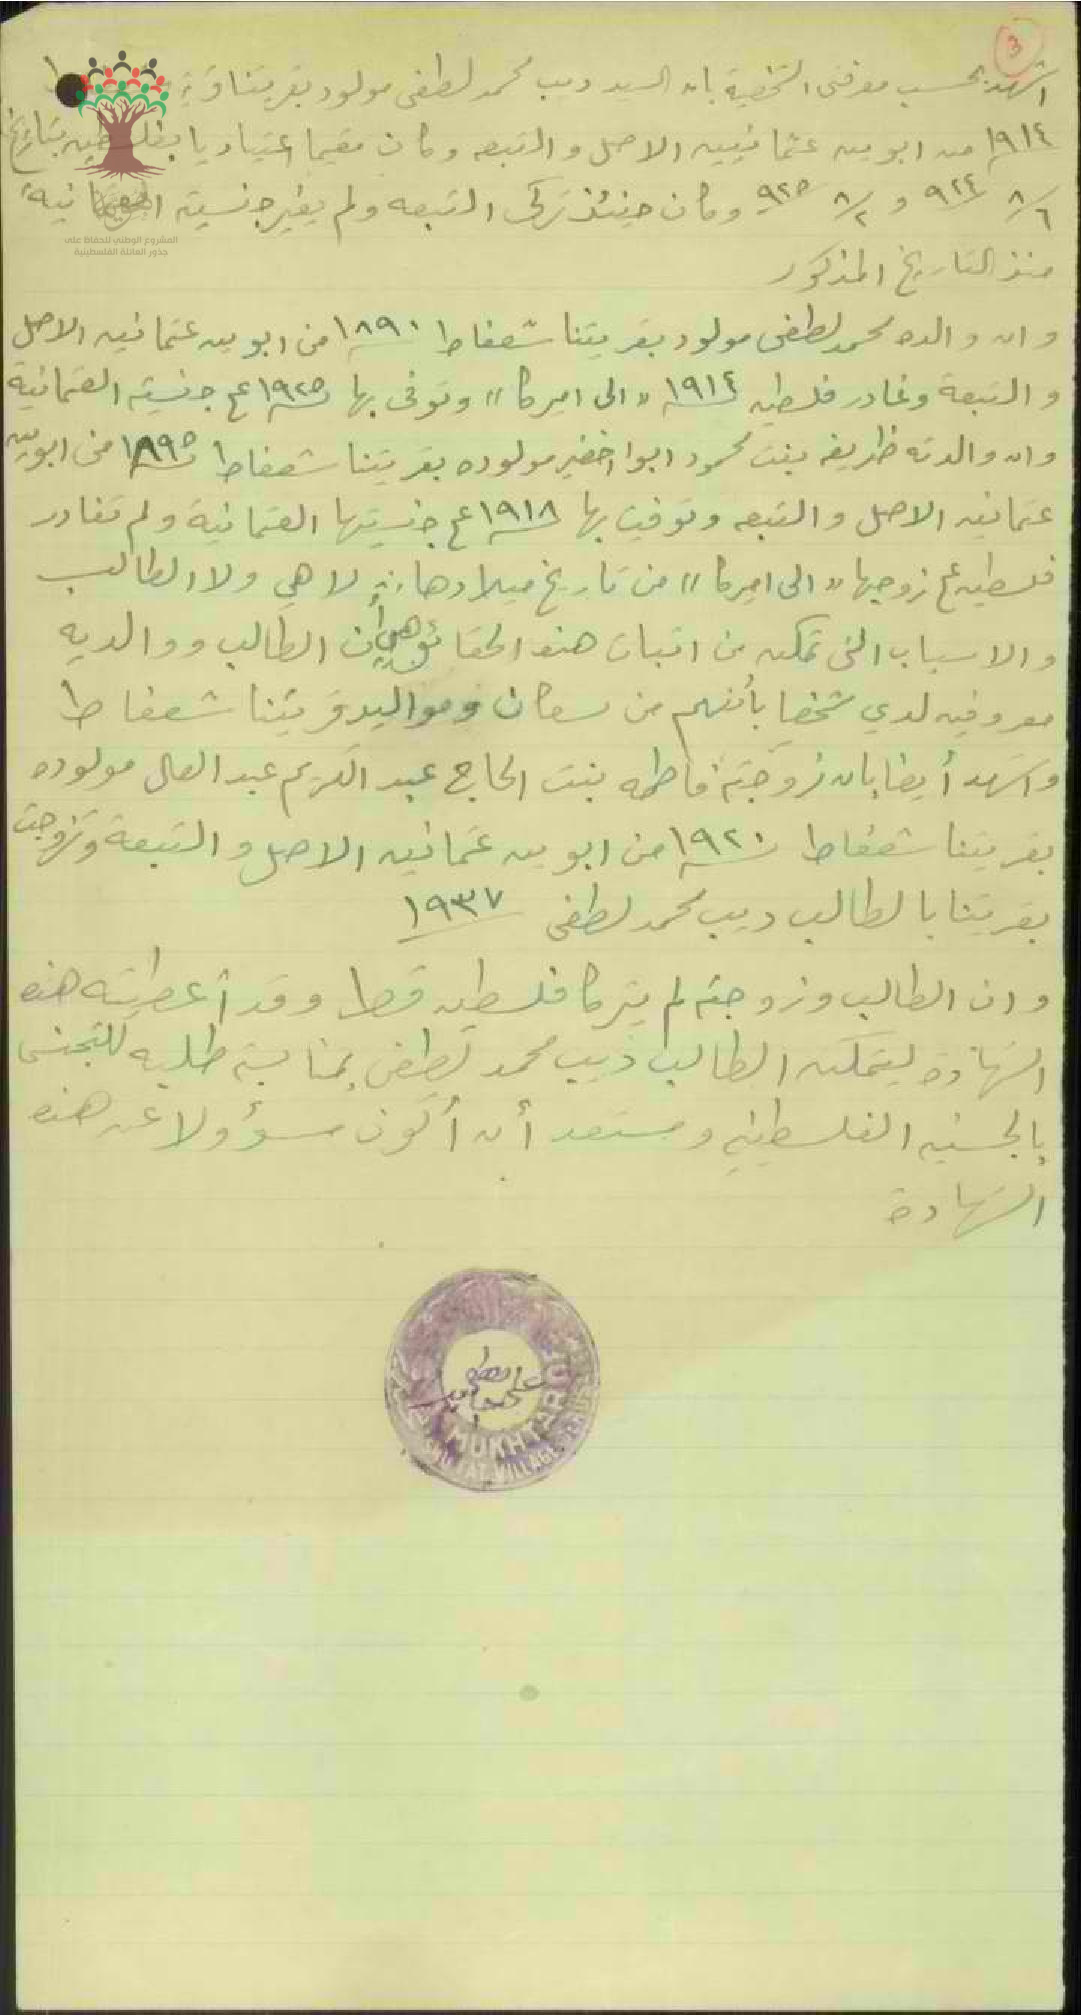 3
اشهد بحسب معرفتي الشخصية بان السيد ديب محمد لطفي مولود بقريتنا
١٩١٤ من ابوين عثمانيين الاصل والتبعه وكان مقيما اعتياديا بفلسطين بتاريخ
٨/٦ ٩٢٤ و ٨/٢ ٩٢٥ وكان حينئذ تركي التبعه ولم يغير جنسيته العثمانية
المشروع الوطني للحفاظ على
جذور العائلة الفلسطينية
منذ التاريخ المذكور
وان والده محمد لطفي مولود بقريتنا شعفاط ١٨٩٠ من ابوين عثمانيه الاصل
والتبعة وغادر فلسطين ١٩١٤ "الى امركا" وتوفى بها ١٩٢٥ ع جنسيته العثمانية
وان والدته ظريفه بنت محمود ابوا خضير مولوده بقريتنا شعفاط ١٨٩٥ من ابوين
عثمانيه الاصل والتبعه وتوفيت بها ١٩١٨ ع جنسيتها العثمانية ولم تغادر
فلسطين ع زوجها "الى اميركا" من تاريخ ميلادها لا هي ولا الطالب
والاسباب التي تمكنه من اثبات هذه الحقائق هي أن الطالب ووالديه
معروفيه لدي شخصيا بأنهم من سكان ومواليد قريتنا شعفاط
واشهد أيضا بان زوجته فاطمه بنت الحاج عبد الكريم عبد العال مولوده
بقريتنا شعفاط ١٩٢٠ من ابوين عثمانيه الاصل والتبعة وتزوجت
بقريتنا بالطالب ديب محمد لطفي ١٩٣٧
وان الطالب وزوجته لم يتركا فلسطين قط وقد أعطيته هذه
الشهادة ليتمكن الطالب ذيب محمد لطفي بمناسبة طلبه للتجنس
بالجنسيه الفلسطينيه ومستعد أن أكون مسؤولا عن هذه
الشهادة
MUKHTAR OF
VILLAGE